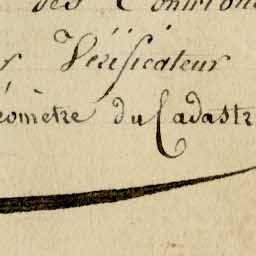 des Contribu
r Vérificateur
éomètre du Cadastr